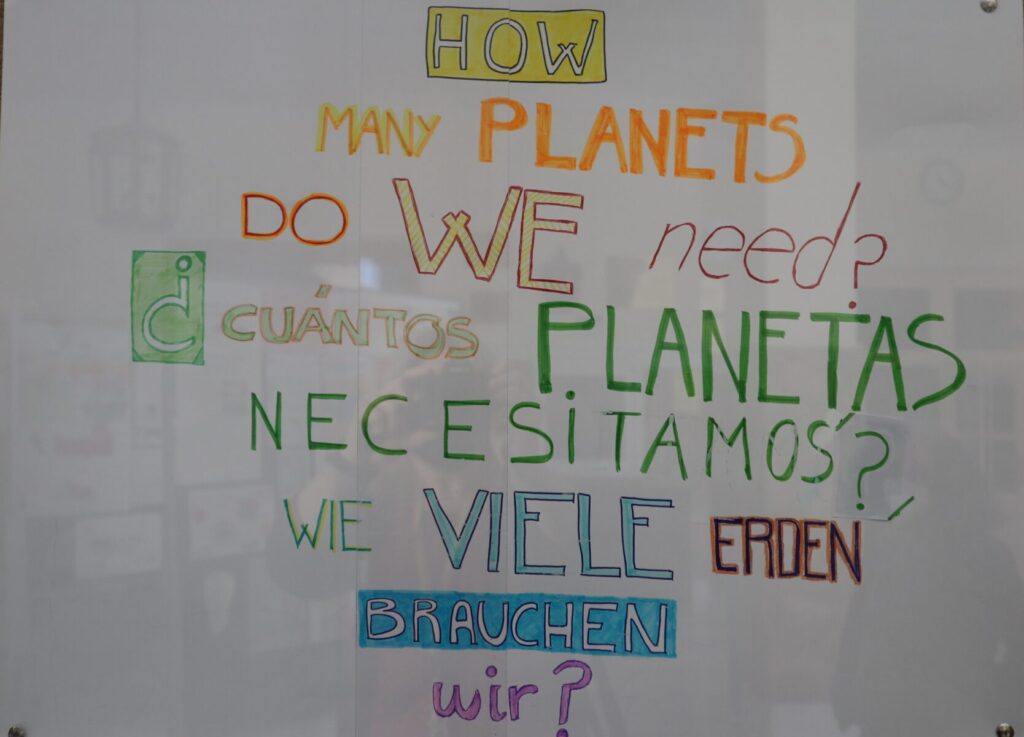 HOW
MANY PLANETS
DO WE need?
¿CUÁNTOS PLANETAS
NECESITAMOS?
WIE VIELE ERDEN
BRAUCHEN
wir?